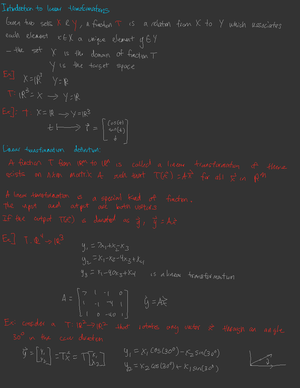 Introduction to linear transformations
Given two sets X & Y, a function T is a relation from X to Y which associates
each element x∈X a unique element y∈Y
- the set X is the domain of function T
Y is the target space
Ex] X=ℝ² Y=ℝ
T: ℝ²=X → Y=ℝ
Ex] T: X=ℝ → Y=ℝ³
Linear transformation definition:
A function T from ℝⁿ to ℝᵐ is called a linear transformation if there
exists an matrix A such that T(x⃗)=Ax⃗ for all x⃗ in ℝⁿ
A linear transformation is a special kind of function.
The input and output are both vectors.
If the output T(x⃗) is denoted as y⃗, y⃗=Ax⃗
Ex] T: → ℝ³
is a linear transformation
A = y⃗=Ax⃗
Ex: consider a T: ℝ²→ℝ² that rotates any vector x⃗ through an angle
30° in the ccw direction
y₁ = x₁cos(30°) - x₂sin(30°)
y₂ = x₂cos(30°) + x₁sin(30°)